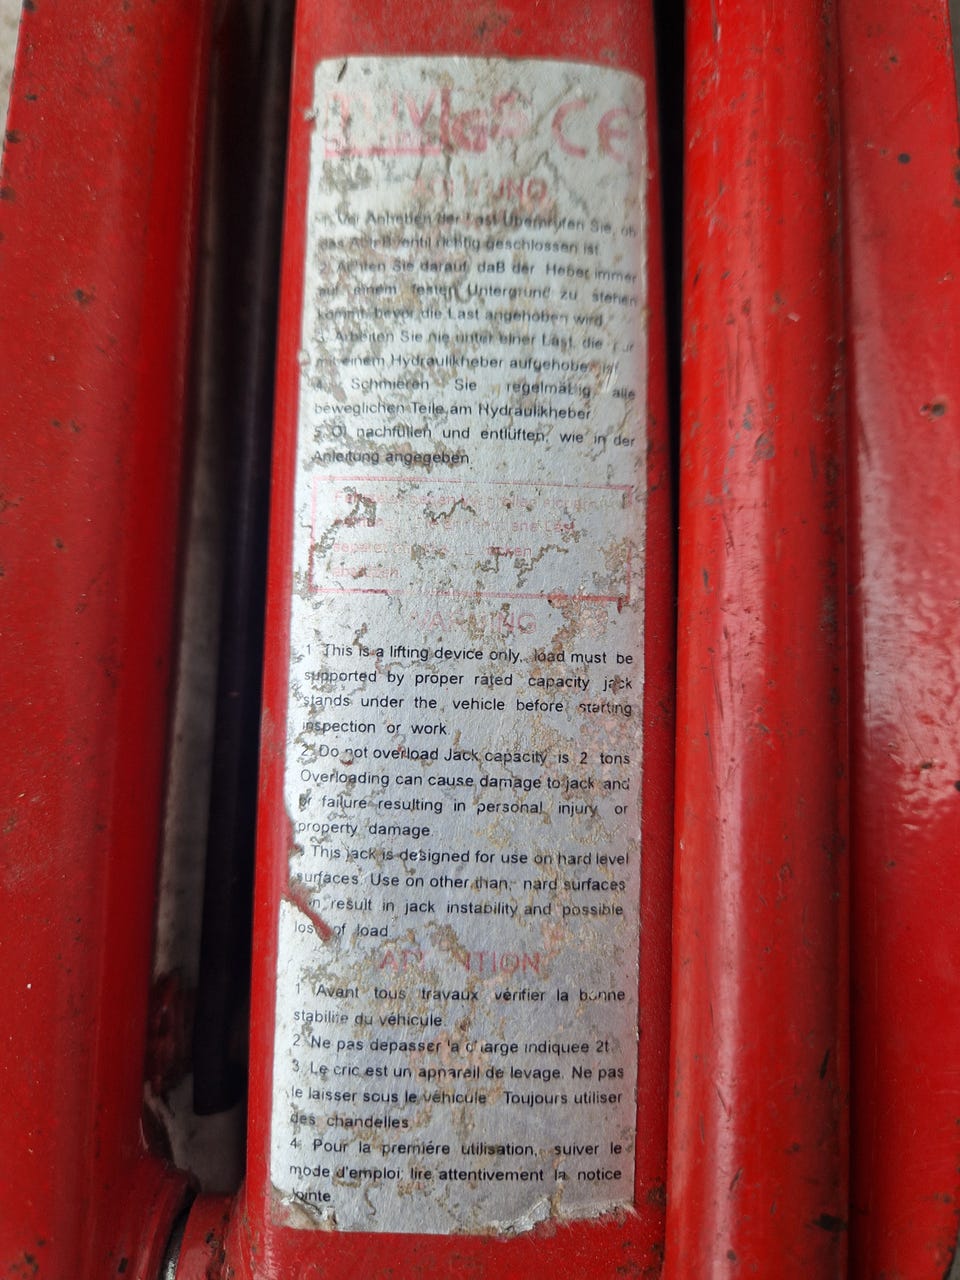 GS CE
1. Vor Anheben der Last Überprüfen Sie, ob
das Ablaßventil richtig geschlossen ist
2. Achten Sie darauf, daß der Heber immer
auf einem festen Untergrund zu stehen
kommt, bevor die Last angehoben wird
3. Arbeiten Sie nie unter einer Last, die nur
mit einem Hydraulikheber aufgehoben ist
4. Schmieren Sie regelmäßig alle
beweglichen Teile am Hydraulikheber
5. Öl nachfüllen und entlüften, wie in der
Anleitung angegeben.
WARNING
1 This is a lifting device only, load must be
supported by proper rated capacity jack
stands under the vehicle before starting
inspection or work
2. Do not overload Jack capacity is 2 tons
Overloading can cause damage to jack and
or failure resulting in personal injury or
property damage.
This jack is designed for use on hard level
surfaces. Use on other than, hard surfaces
can result in jack instability and possible
loss of load
ATTENTION
1 Avant tous travaux vérifier la bonne
stabilite du véhicule.
2. Ne pas depasser la charge indiquee 2t
3. Le cric est un appareil de levage. Ne pas
le laisser sous le véhicule Toujours utiliser
des chandelles
4. Pour la premiére utilisation, suiver le
mode d'emploi; lire attentivement la notice
jointe.